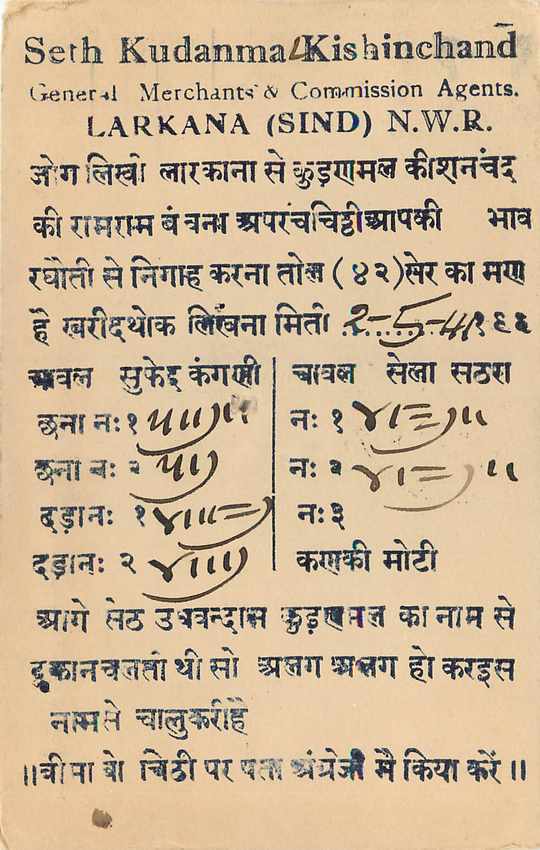 Seth Kudanmal Kishinchand
General Merchants & Commission Agents.
LARKANA (SIND) N.W.R.
जोग लिखी लारकाना से कुड़णमल कीशनचंद
की रामराम बंचना अपरंच चिठ्ठी आपकी भाव
रघोती से निगाह करना तोल (४२) सेर का मण
है खरीद थोक लिखना मिती 2-5-41 १९६
चावल सुफेद कंगणी चावल सेला सठरा
छना नः १ ५॥।)॥ नः १ ४।=)॥
छना नः २ ५॥) नः २ ४।=)॥
दड़ा नः १ नः ३
दड़ा नः २ कणकी मोटी
आगे सेठ उधवन्दास कुड़णमल का नाम से
दुकान चलती थी सो अलग अलग हो कर इस
नाम से चालु करी है
॥ बीमा वो चिठी पर पता अंग्रेजी मै किया करें ॥